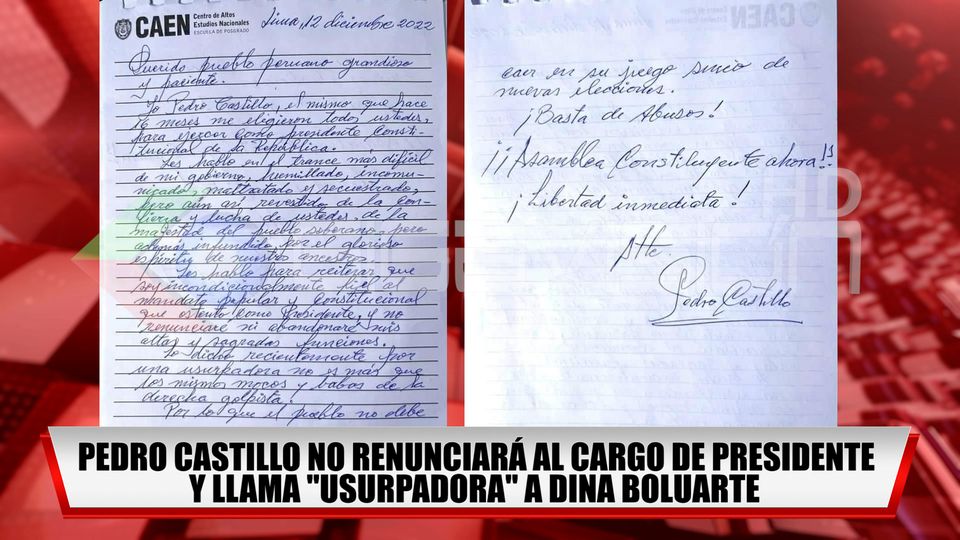 CAEN
Centro de Altos
Estudios Nacionales
ESCUELA DE POSGRADO
Lima, 12 diciembre 2022
Querido pueblo peruano grandioso
y paciente.
Yo Pedro Castillo, el mismo que hace
16 meses me eligieron todos ustedes,
para ejercer como presidente Consti-
tucional de la República.
Les hablo en el trance más difícil
de mi gobierno, humillado, incomu-
nicado, maltratado y secuestrado,
pero aún así revestido de la con-
fianza y lucha de ustedes, de la
majestad del pueblo soberano, pero
además infundido por el glorioso
espíritu de nuestros ancestros.
Les hablo para reiterar que
soy incondicionalmente fiel al
mandato popular y Constitucional
que ostento como Presidente, y no
renunciaré ni abandonaré mis
altas y sagradas funciones.
Lo dicho recientemente por
una usurpadora no es más que
los mismos mocos y babas de la
derecha golpista.
Por lo que el pueblo no debe
CAEN
caer en su juego sucio de
nuevas elecciones.
¡Basta de Abusos!
¡¡Asamblea Constituyente ahora!!
¡Libertad inmediata!
Atte.
Pedro Castillo
PEDRO CASTILLO NO RENUNCIARÁ AL CARGO DE PRESIDENTE
Y LLAMA "USURPADORA" A DINA BOLUARTE